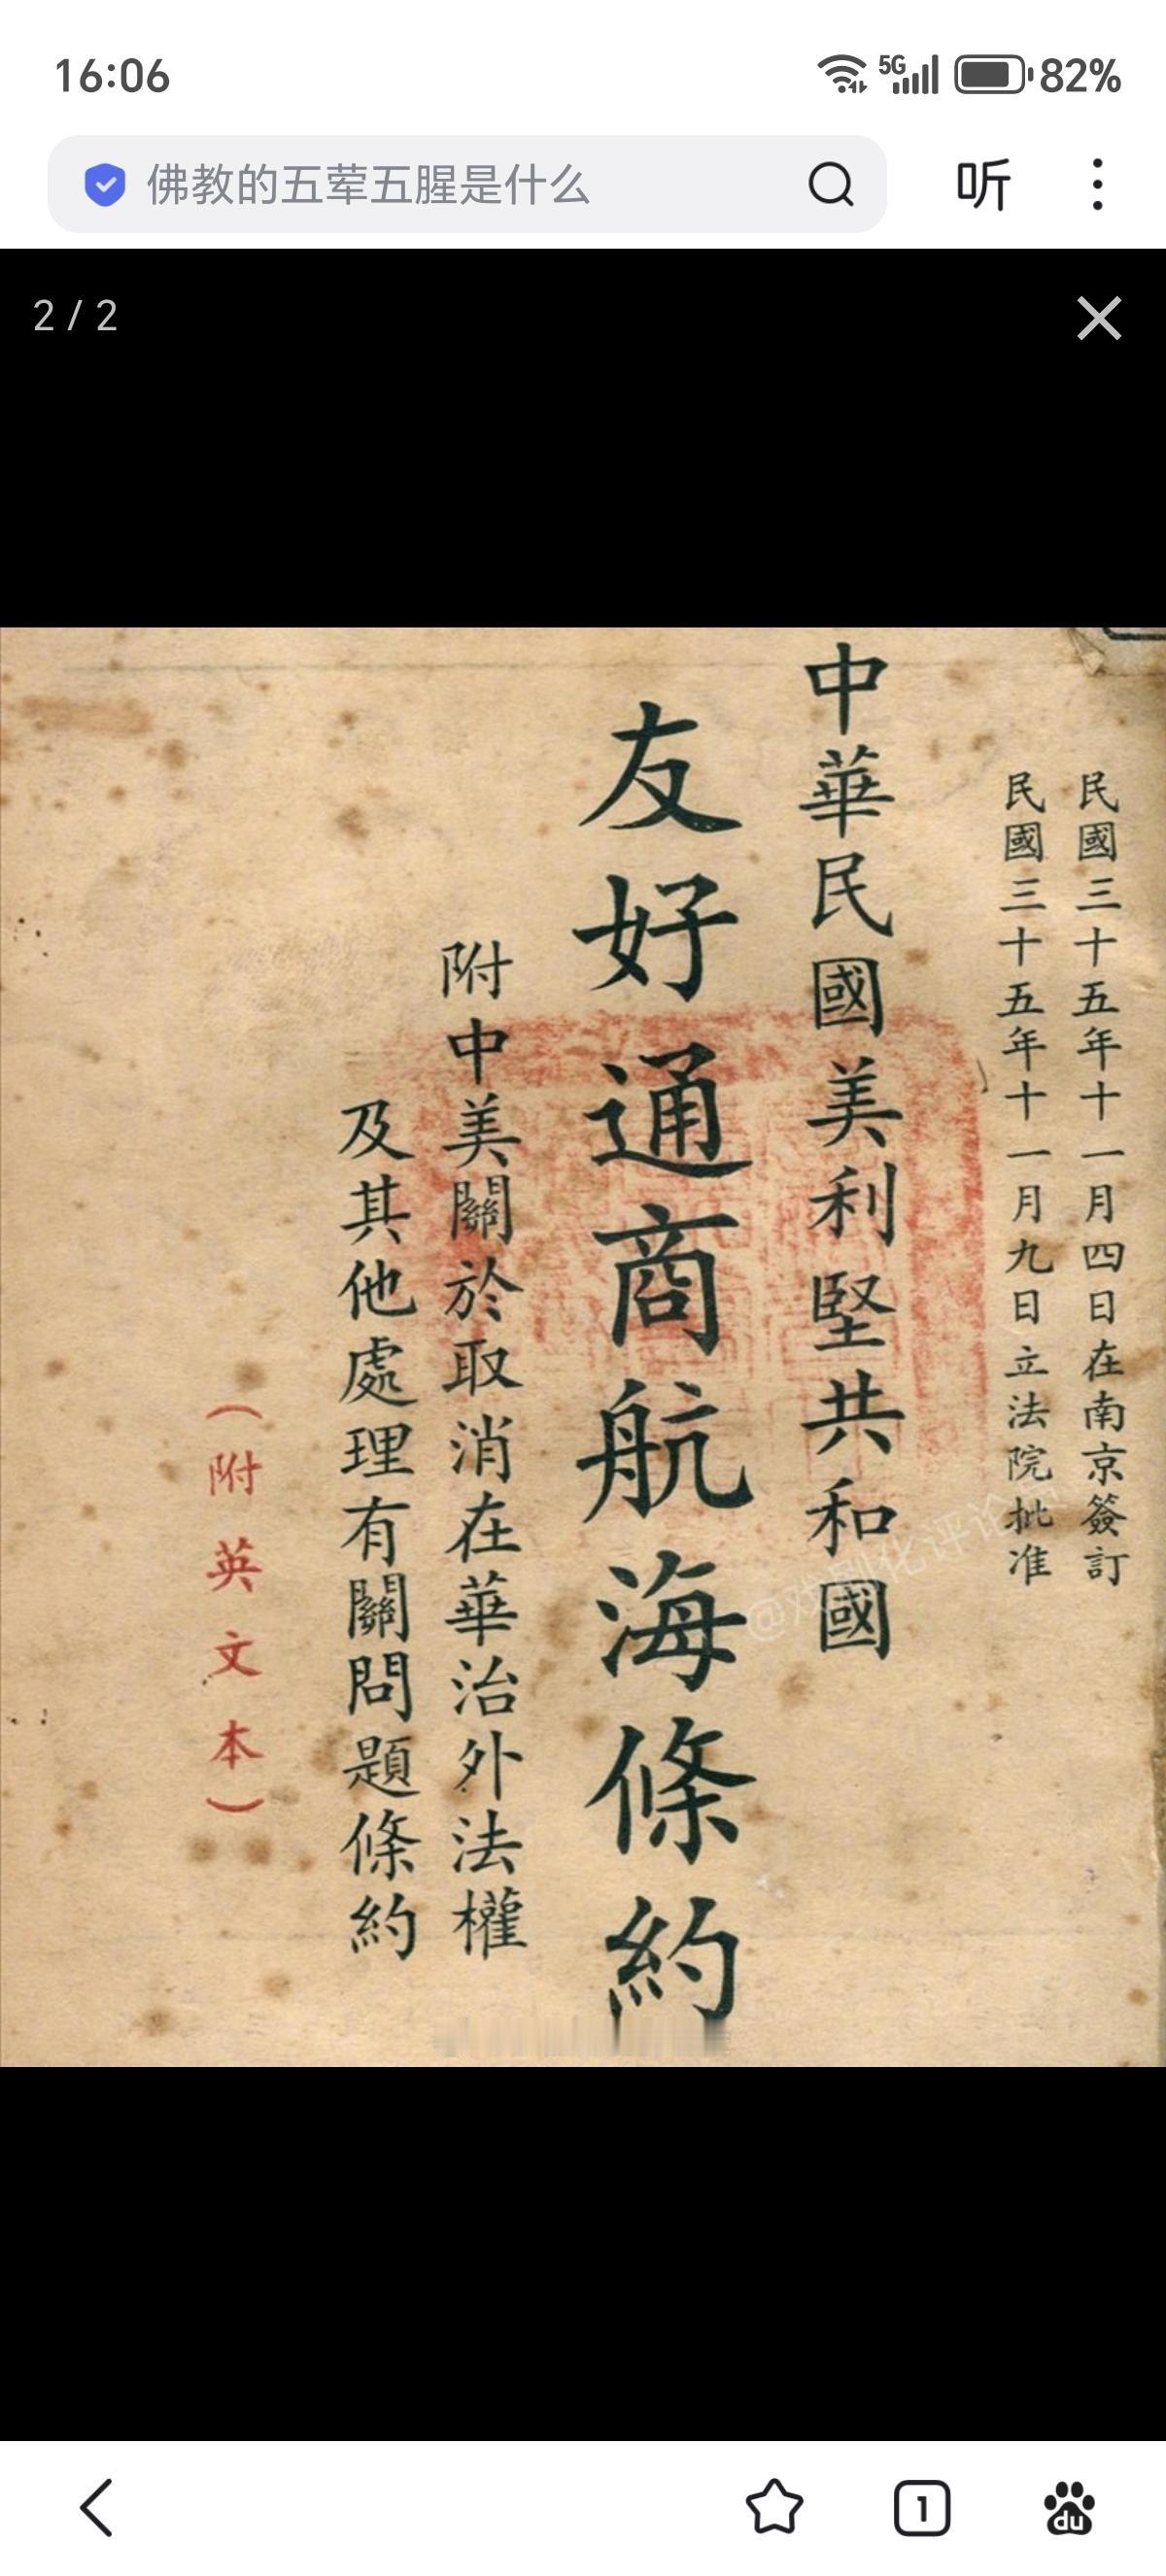 16:06
5G
82%
佛教的五荤五腥是什么
听
2 / 2
民國三十五年十一月四日在南京簽訂
民國三十五年十一月九日立法院批准
中華民國美利堅共和國
友好通商航海條約
附中美關於取消在華治外法權
及其他處理有關問題條約
（附英文本）
1
du